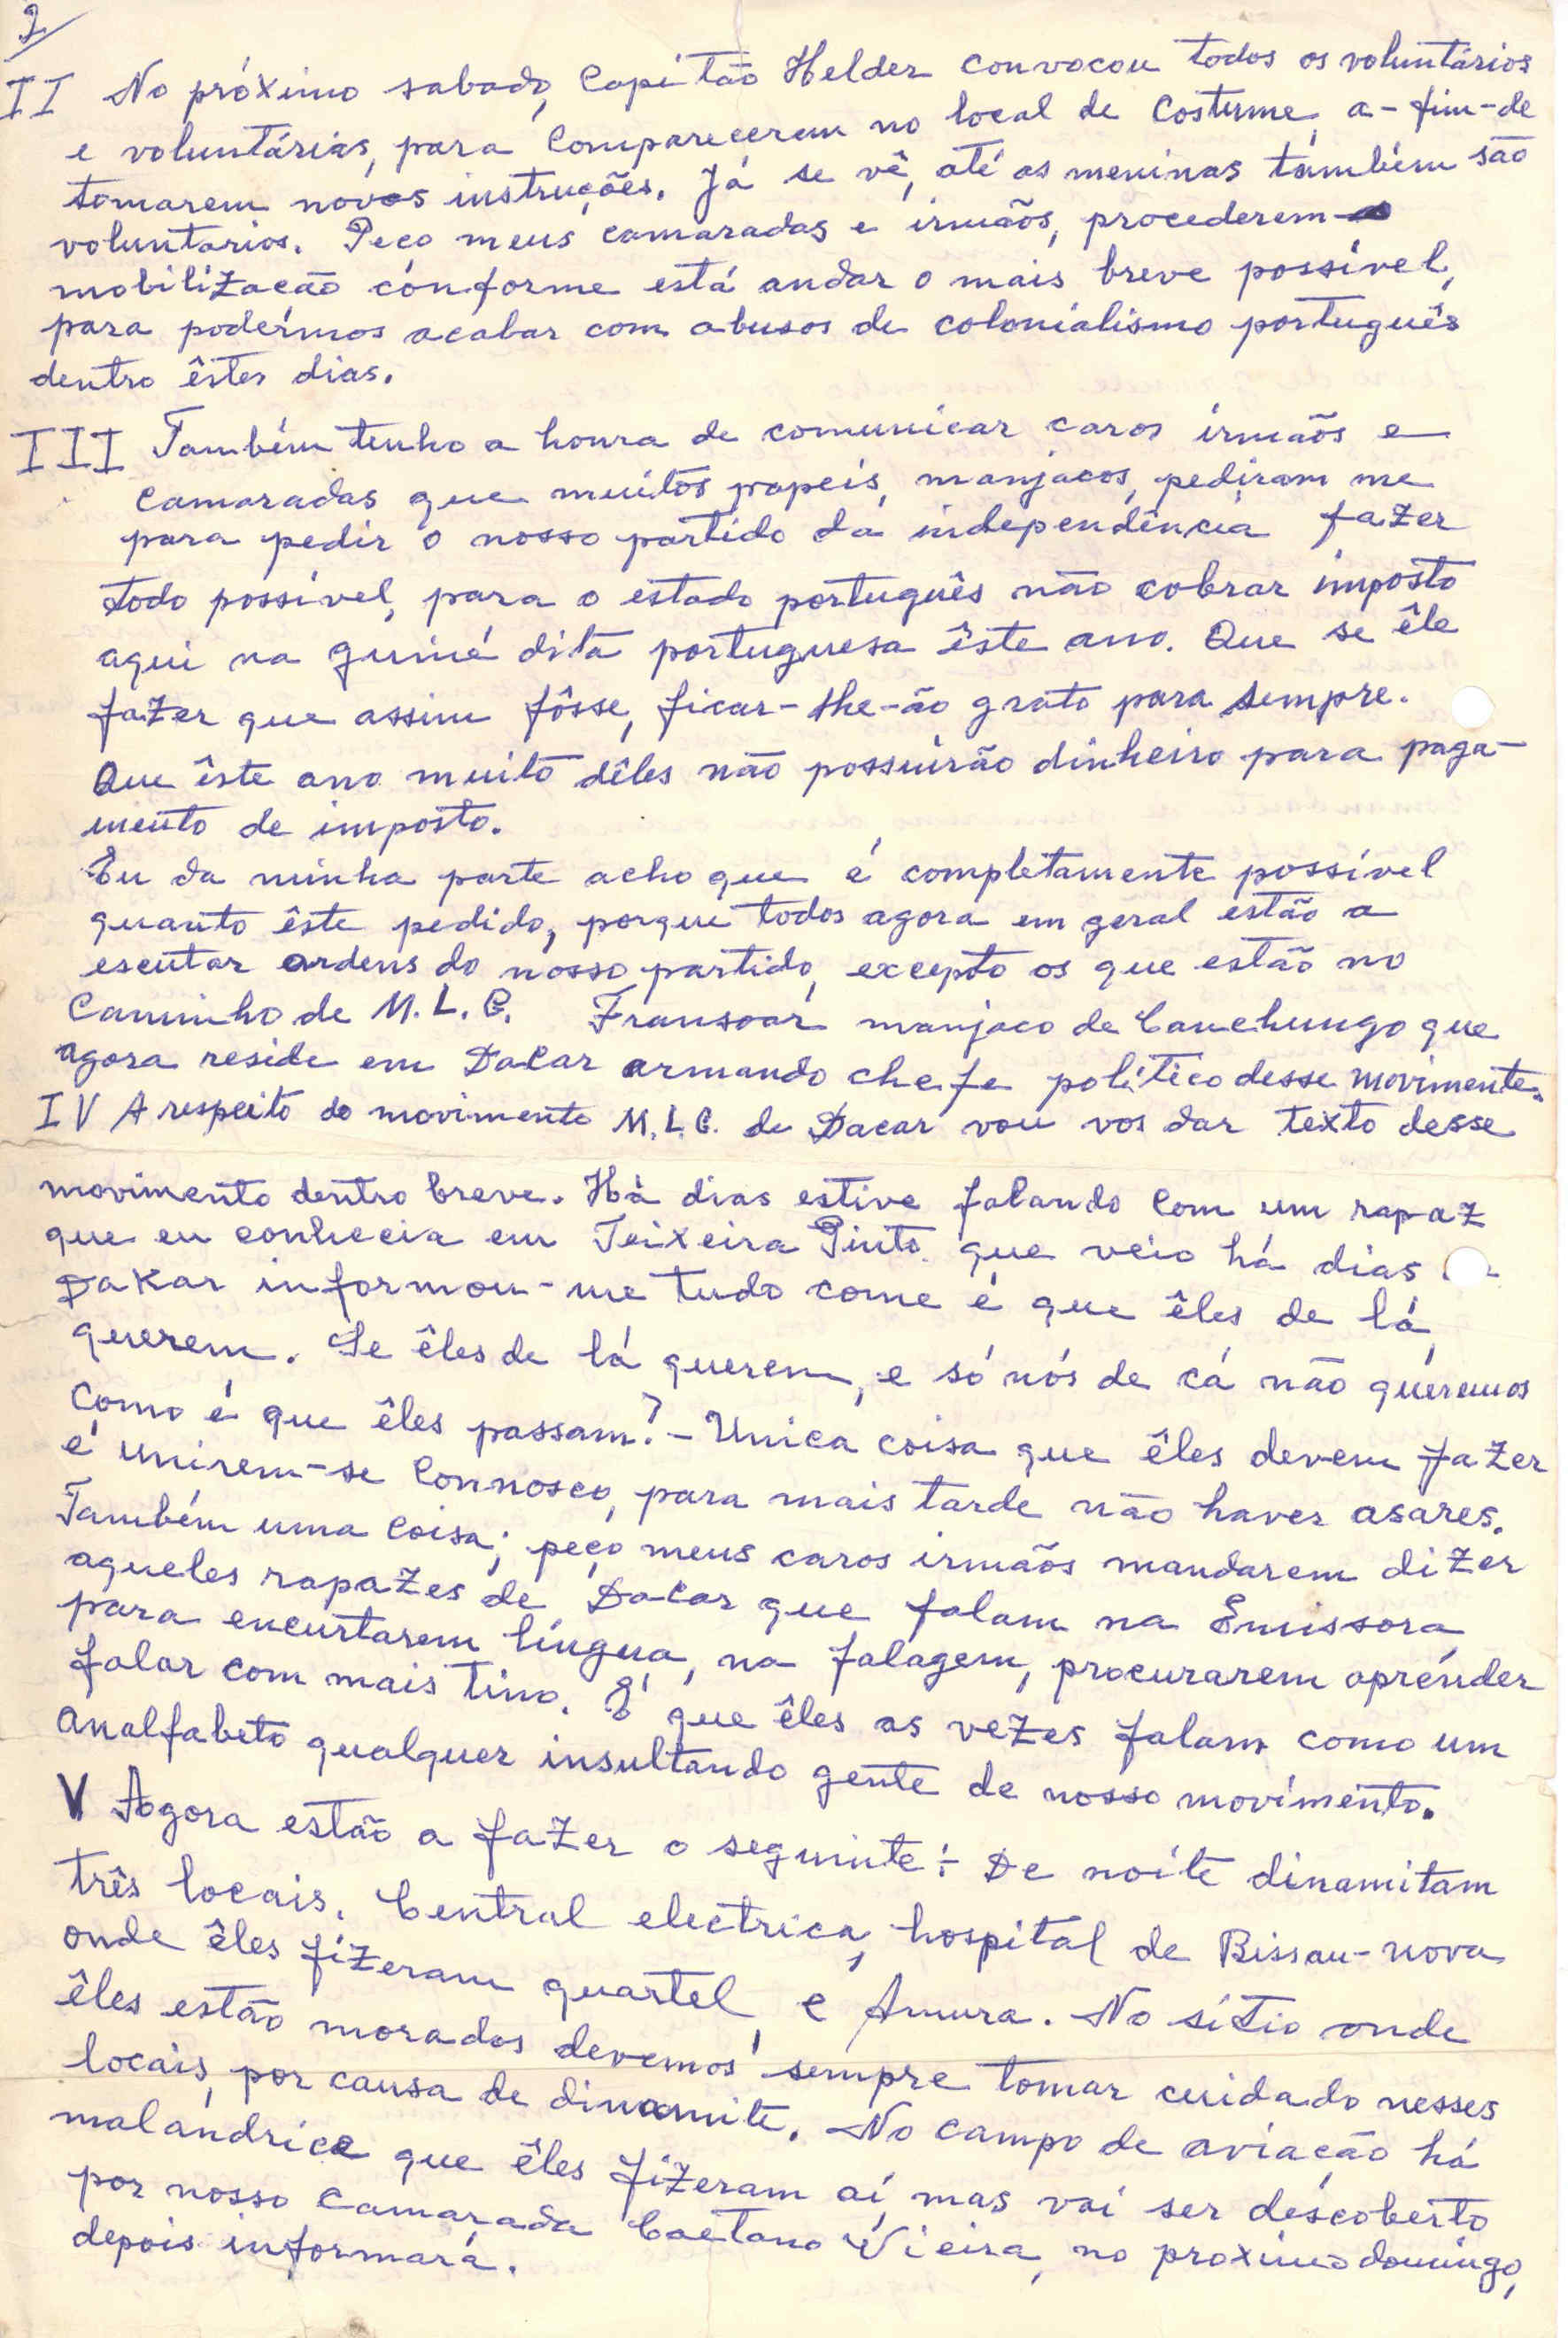 2
II No próximo sabado, Capitão Helder convocou todos os voluntários
e voluntárias, para comparecerem no local de costume, a-fim-de
tomarem novas instruções. Já se vê, até as meninas também são
voluntarios. Peço meus camaradas e irmãos, procederem
mobilização conforme está andar o mais breve possível,
para poderimos acabar com abusos de colonialismo português
dentro êstes dias.
III Também tenho a honra de comunicar caros irmãos e
camaradas que muitos papeis, manjacos, pediram me
para pedir o nosso partido da independência fazer
todo possível, para o estado português não cobrar imposto
aqui na guiné dita portuguesa êste ano. Que se êle
fazer que assim fôsse, ficar-lhe-ão grato para sempre.
Que êste ano muito dêles não possuirão dinheiro para paga-
mento de imposto.
Eu da minha parte acho que é completamente possível
quanto êste pedido, porque todos agora em geral estão a
escutar ordens do nosso partido, excepto os que estão no
Caminho de M.L.G. Fransoar manjaco de Canchungo que
agora reside em Dacar armando chefe político desse movimento.
IV A respeito do movimento M.L.G. de Dacar vou vos dar texto desse
movimento dentro breve. Há dias estive falando com um rapaz
que eu conhecia em Teixeira Pinto que veio há dias
Dakar informou-me tudo come é que êles de lá
querem. Se êles de lá querem, e só nós de cá não queremos
como é que êles passam? - Unica coisa que êles devem fazer
é unirem-se connosco, para mais tarde não haver asares.
Também uma coisa; peço meus caros irmãos mandarem dizer
aqueles rapazes de Dacar que falam na Emissora,
para encurtarem língua, na falagem, procurarem aprender
falar com mais tino. É que êles as vezes falam como um
analfabeto qualquer insultando gente de nosso movimento.
V Agora estão a fazer o seguinte:- De noite dinamitam
três locais. Central electrica, hospital de Bissau-nova
onde êles fizeram quartel, e Amura. No sítio onde
êles estão morados devemos sempre tomar cuidado nesses
locais, por causa de dinamite. No campo de aviação há
malandrice que êles fizeram aí, mas vai ser descoberto
por nosso camarada Caetano Vieira, no proximo domingo,
depois informará.